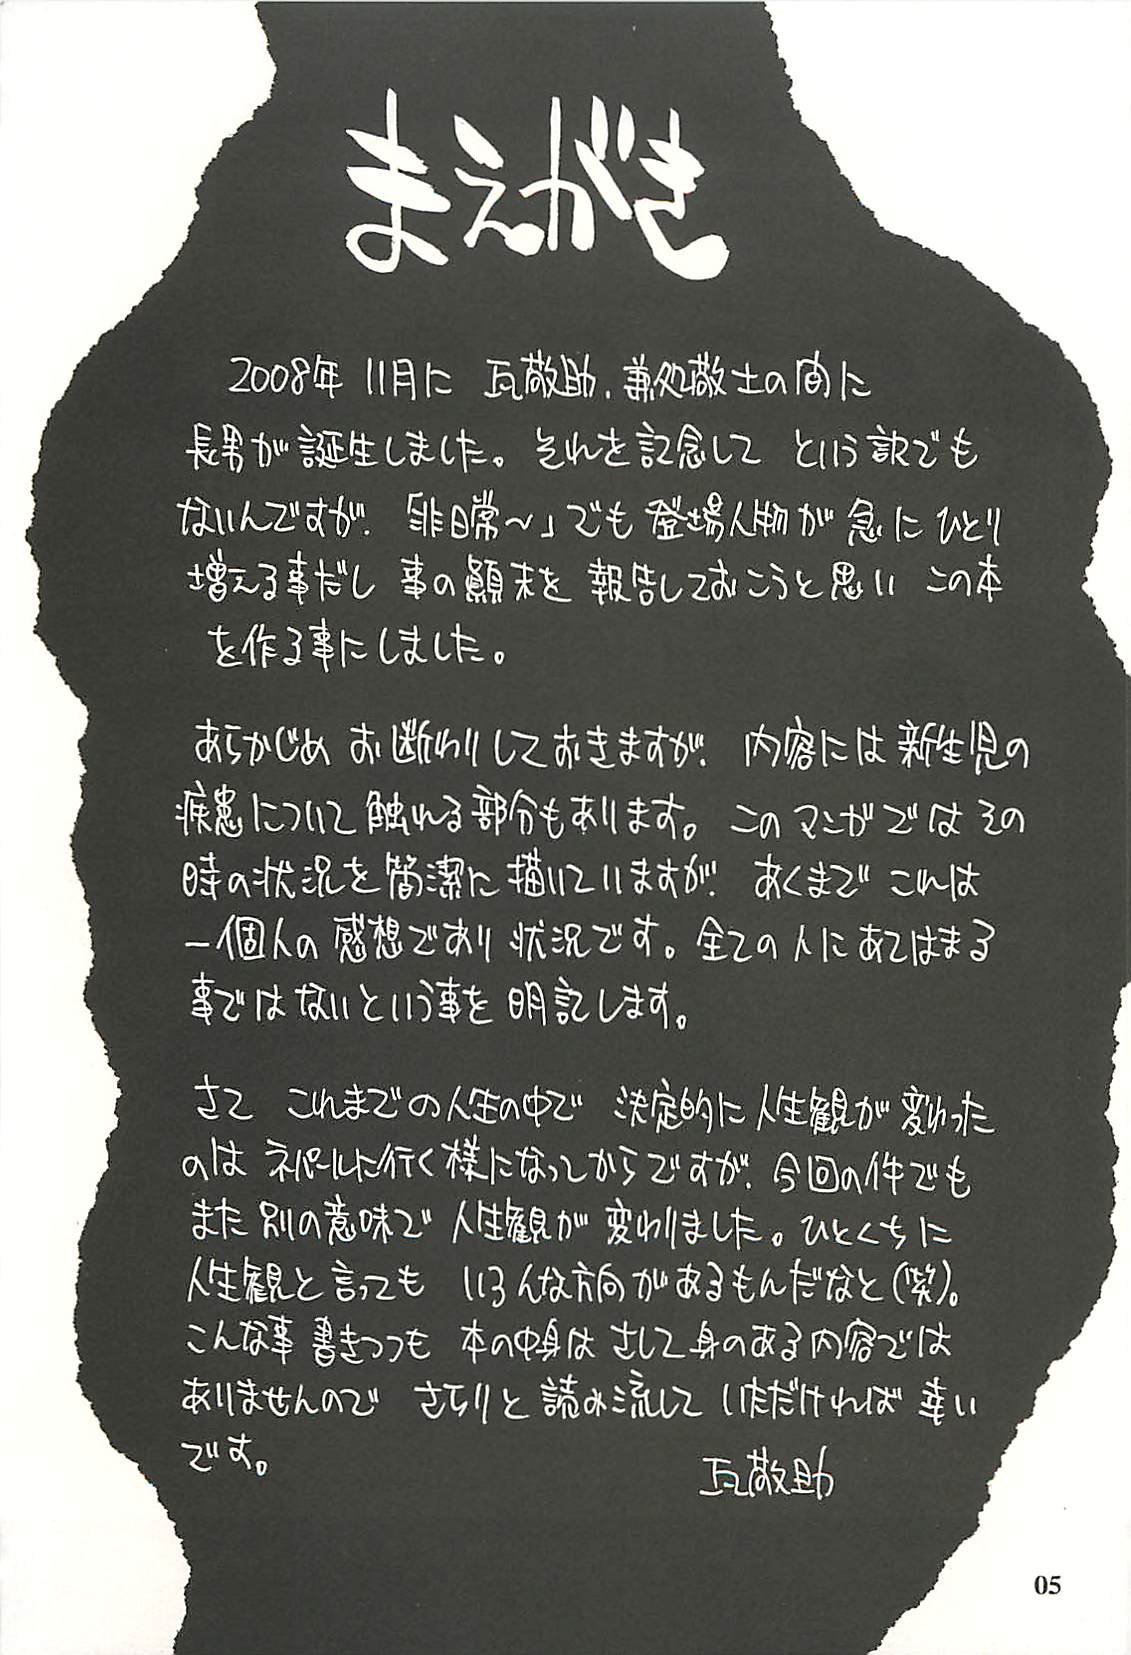 まえがき
2008年 11月に 瓦敬助、兼処敬士の間に
長男が誕生しました。それを記念して という訳でも
ないんですが、「非日常〜」でも登場人物が急にひとり
増える事だし 事の顛末を報告しておこうと思い この本
を作る事にしました。
あらかじめお断わりしておきますが、内容には新生児の
疾患について触れる部分もあります。このマンガではその
時の状況を簡潔に描いていますが、あくまで これは
一個人の感想であり状況です。全ての人にあてはまる
事ではないという事を明記します。
さて これまでの人生の中で 決定的に人生観が変わった
のは ネパールに行く様になってからですが、今回の件でも
また別の意味で人生観が変わりました。ひとくちに
人生観と言っても いろんな方向があるもんだなと(笑)。
こんな事書きつつも 本の中身は さして身のある内容では
ありませんので さらりと読み流して いただければ幸い
です。
瓦敬助
05